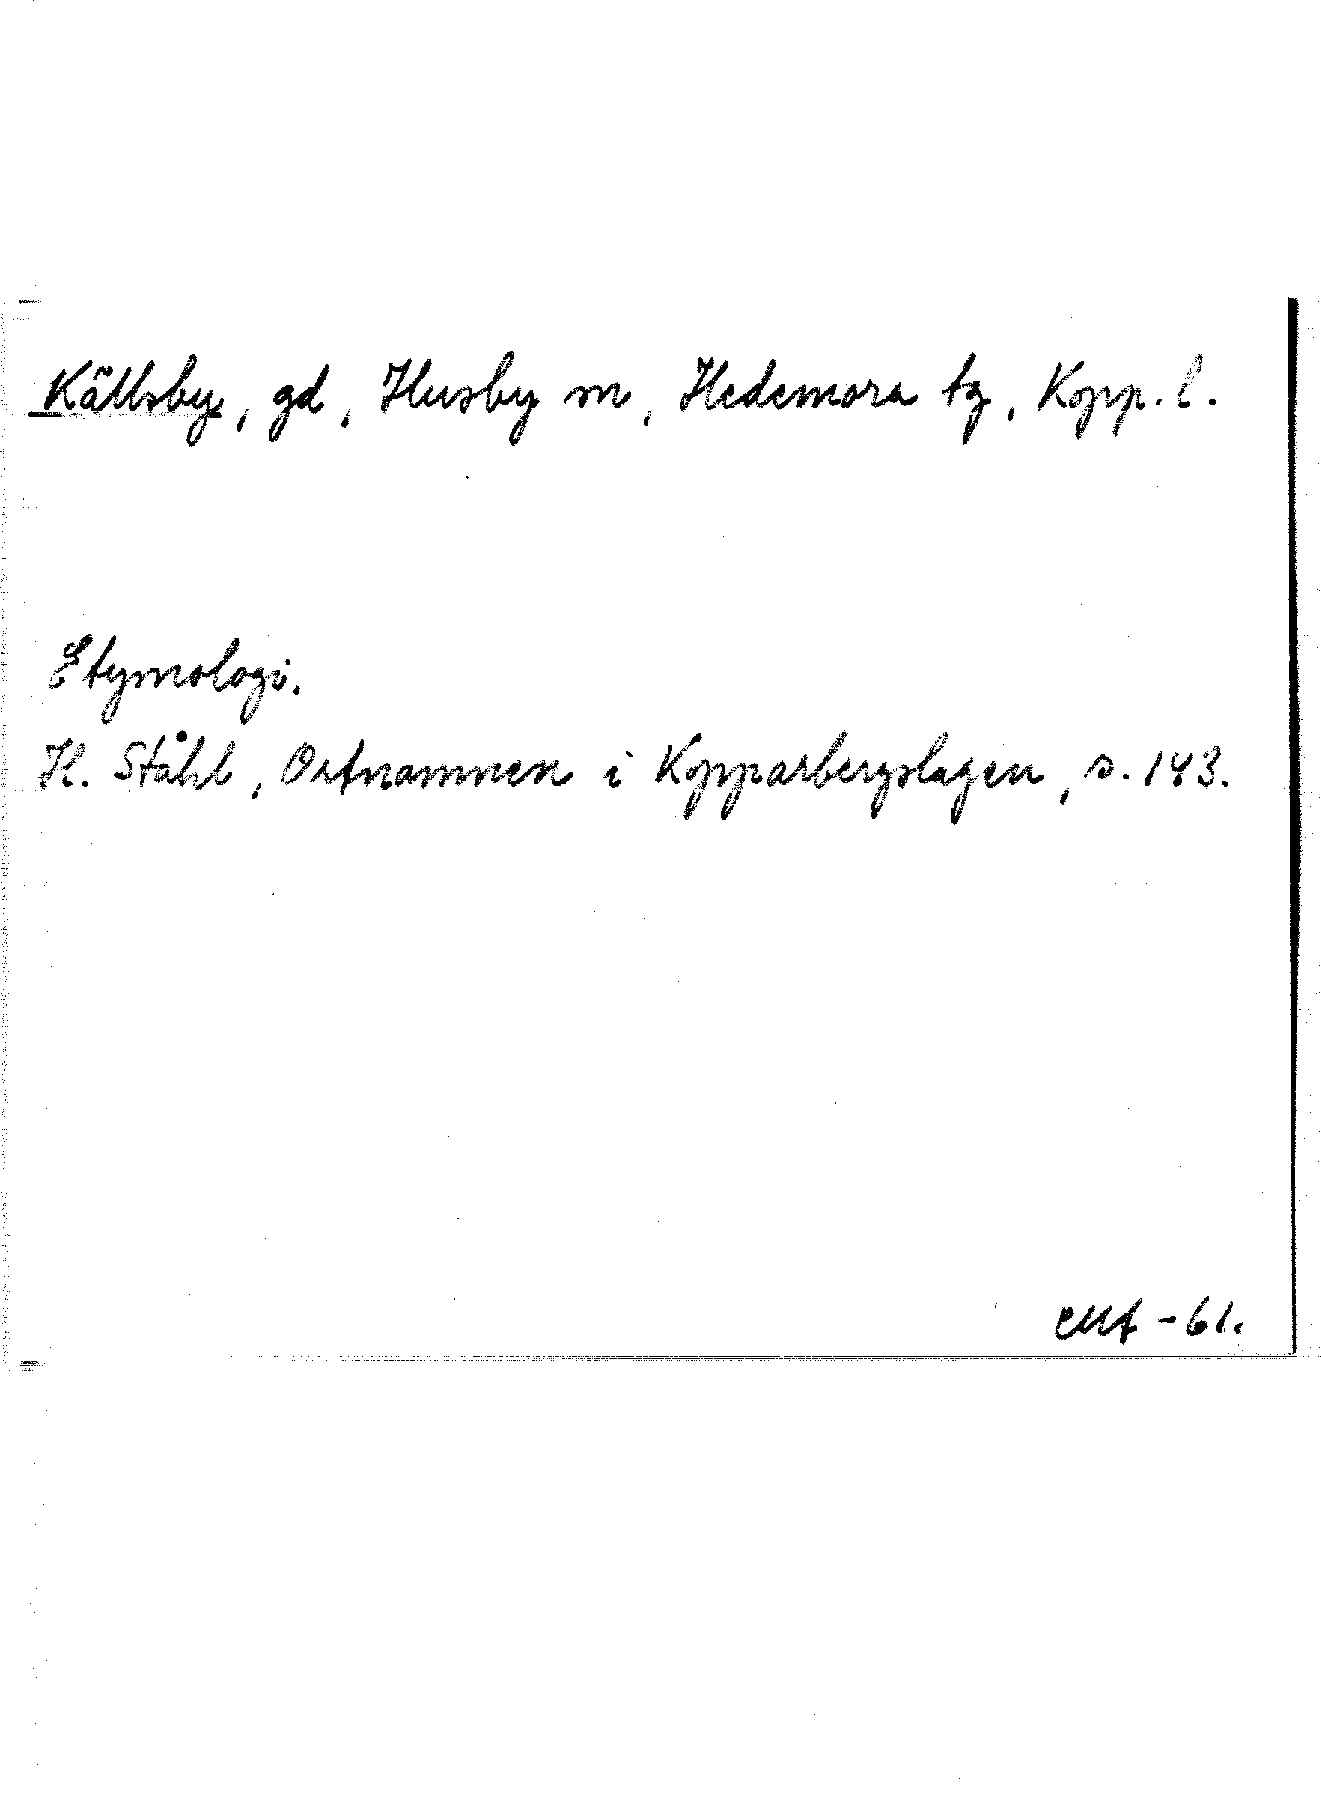 Källsby, gd, Husby sn, Hedemora tg, Kopp. l.
Etymologi.
H. Ståhl, Ortnamnen i Kopparbergslagen, s. 143.
-61.